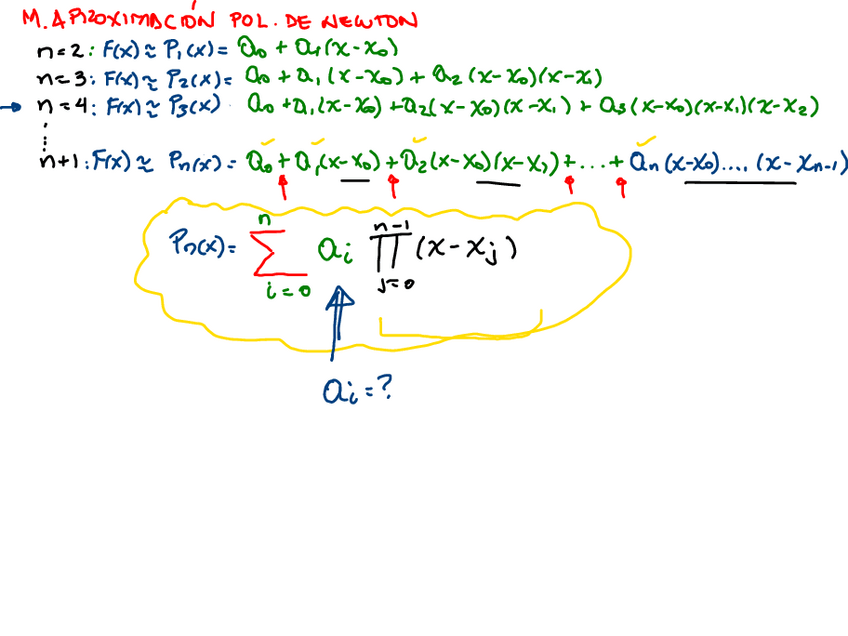 M. APROXIMACIÓN POL. DE NEWTON
n=2: F(x) ≈ P₁(x) = a₀ + a₁(x-x₀)
n=3: F(x) ≈ P₂(x) = a₀ + a₁(x-x₀) + a₂(x-x₀)(x-x₁)
→ n=4: F(x) ≈ P₃(x) a₀ + a₁(x-x₀) + a₂(x-x₀)(x-x₁) + a₃(x-x₀)(x-x₁)(x-x₂)
⋮
n+1: F(x) ≈ Pₙ(x) = a₀ + a₁(x-x₀) + a₂(x-x₀)(x-x₁) + ... + aₙ(x-x₀)....(x-xₙ₋₁)
Pₙ(x) = ∑_{i=0}^{n} aᵢ ∏_{j=0}^{n-1} (x-xⱼ)
aᵢ = ?